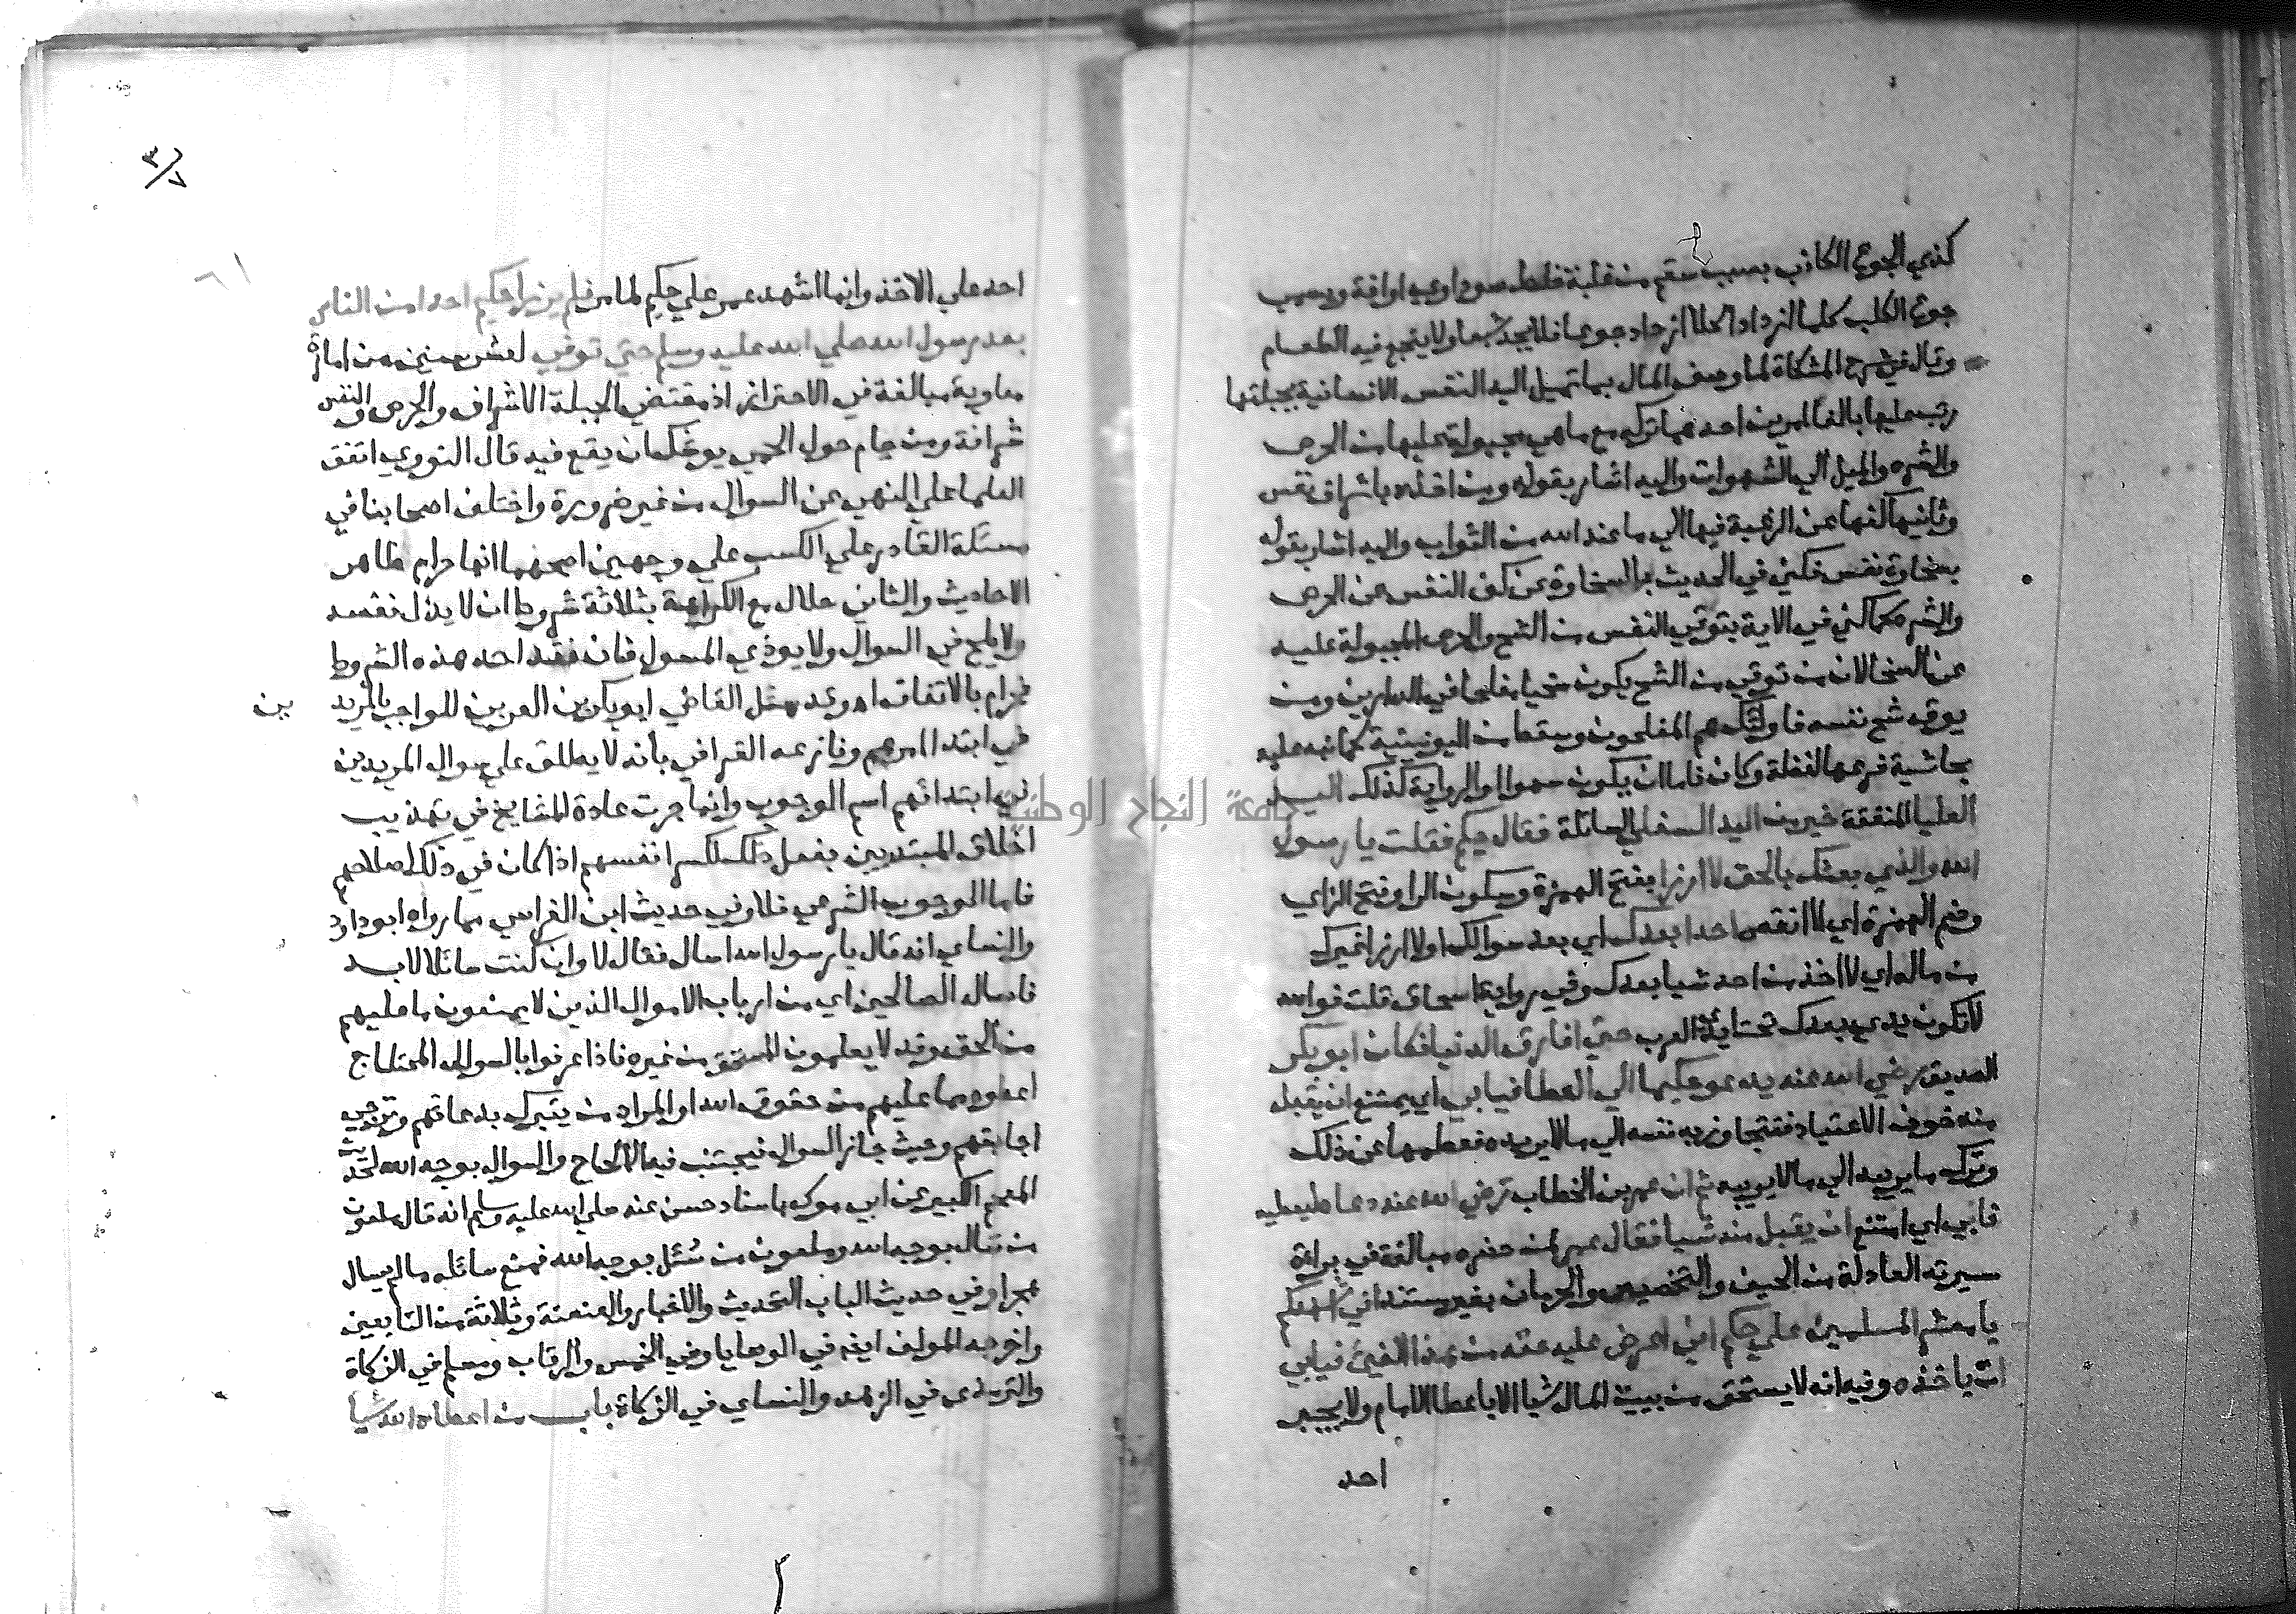 كذي الجوع الكاذب بسبب سقم من غلبة خلط سوداوي او افة ويسمى
جوع الكلب كلما ازداد اكلا ازداد جوعا فلا يجد شبعا ولا ينجع فيه الطعام
وقال في شرح المشكاة لما وصف المال بما تميل اليه النفس الانسانية بجبلتها
رتب عليها بالفا امرين احدهما تركه مع ما هي مجبولة عليها من الحرص
والشره والميل الي الشهوات واليه اشار بقوله ومن اخذه باشراف نفس
وثانيهما كفها عن الرغبة فيها الي ما عند الله من الثواب واليه اشار بقوله
بسخاوة نفس فكني في الحديث بالسخاوة عن كف النفس عن الحرص
والشره كما كني في الاية بتوقي النفس من الشح والحرص المجبولة عليه
عن السخا لان من توقي من الشح يكون سخيا مفلحا في الدارين ومن
يوق شح نفسه فاوليك هم المفلحون وسقط من اليونينية كما نبه عليه
بحاشية فرعها لفظة وكان فاما ان يكون سهوا او الرواية كذلك اليد
العليا المنفقة خير من اليد السفلي السائلة فقال حكيم فقلت يا رسول
الله والذي بعثك بالحق لا ارزا بفتح الهمزة وسكون الرا وفتح الزاي
وضم الهمزة اي لا انقص احدا بعدك اي بعد سوالك او لا ارزا غيرك
من ماله اي لا اخذ من احد شيا بعدك وفي رواية اسحاق قلت فوالله
لا تكون يدي بعدك تحت ايدي العرب حتي افارق الدنيا فكان ابو بكر
الصديق رضي الله عنه يدعو حكيما الي العطا فيابي اي يمتنع ان يقبله
منه خوف الاعتياد فتتجاوز به نفسه الي ما لا يريده ففطمها عن ذلك
وترك ما يريبه الي ما لا يريبه ثم ان عمر بن الخطاب رضي الله عنه دعاه ليعطيه
فابي اي امتنع ان يقبل منه شيا فقال عمر لمن حضره مبالغة في براءة
سيرته العادلة من الحيف والتخصيص والحرمان بغير مستند اني اشهدكم
يا معشر المسلمين علي حكيم اني اعرض عليه حقه من هذا الفيئ فيابي
ان ياخذه وفيه انه لا يستحق من بيت المال شيا الا باعطا الامام ولا يجبر
احد
٣/٧
٦١
احد علي الاخذ وانما اشهد عمر علي حكيم لما مر فلم يرزا حكيم احدا من الناس
بعد رسول الله صلي الله عليه وسلم حتي توفي لعشر سنين من امارة
معاوية مبالغة في الاحتراز اذ مقتضي الجبلة الاشراف والحرص والنفس
شرافة ومن حام حول الحمي يوشك ان يقع فيه قال النووي اتفق
العلما علي النهي عن السوال من غير ضرورة واختلف اصحابنا في
مسئلة القادر علي الكسب علي وجهين اصحهما انها حرام ظاهر
الاحاديث والثاني حلال مع الكراهة بثلاثة شروط ان لا يذل نفسه
ولا يلح في السوال ولا يوذي المسول فان فقد احد هذه الشروط
فحرام بالاتفاق اه وقد مثل القاضي ابو بكر بن العربي للواجب بالمريد
ين
في ابتدا امرهم ونازعه القرافي بأنه لا يطلق علي سوال المريدين
في ابتدائهم اسم الوجوب وانما جرت عادة المشايخ في تهذيب
اخلاق المبتديين بفعل ذلك لكسر انفسهم اذا كان في ذلك اصلاحهم
فاما الوجوب الشرعي فلا وفي حديث ابن الفراسي مما رواه ابو داود
والنساي انه قال يا رسول الله اسال فقال لا وان كنت سائلا لا بد
فاسال الصالحين اي من ارباب الاموال الذين لا يمنعون ما عليهم
من الحق وقد لا يعلمون المستحق من غيره فاذا عرفوا بالسوال المحتاج
اعطوه مما عليهم من حقوق الله او المراد من يتبرك بدعائهم وترجي
اجابتهم وحيث جاز السوال فيجتنب فيه الالحاح والسوال بوجه الله لحديث
المعجم الكبير عن ابي موسي باسناد حسن عنه صلي الله عليه وسلم انه قال ملعون
من سال بوجه الله وملعون من سُئل بوجه الله فمنع سائله ما لم يسال
هجرا وفي حديث الباب التحديث والاخبار والعنعنة وثلاثة من التابعين
واخرجه المولف ايضا في الوصايا وفي الخمس والرقاب ومسلم في الزكاة
والترمذي في الزهد والنساي في الزكاة باب من اعطاه الله شيا
جامعة النجاح الوطنية